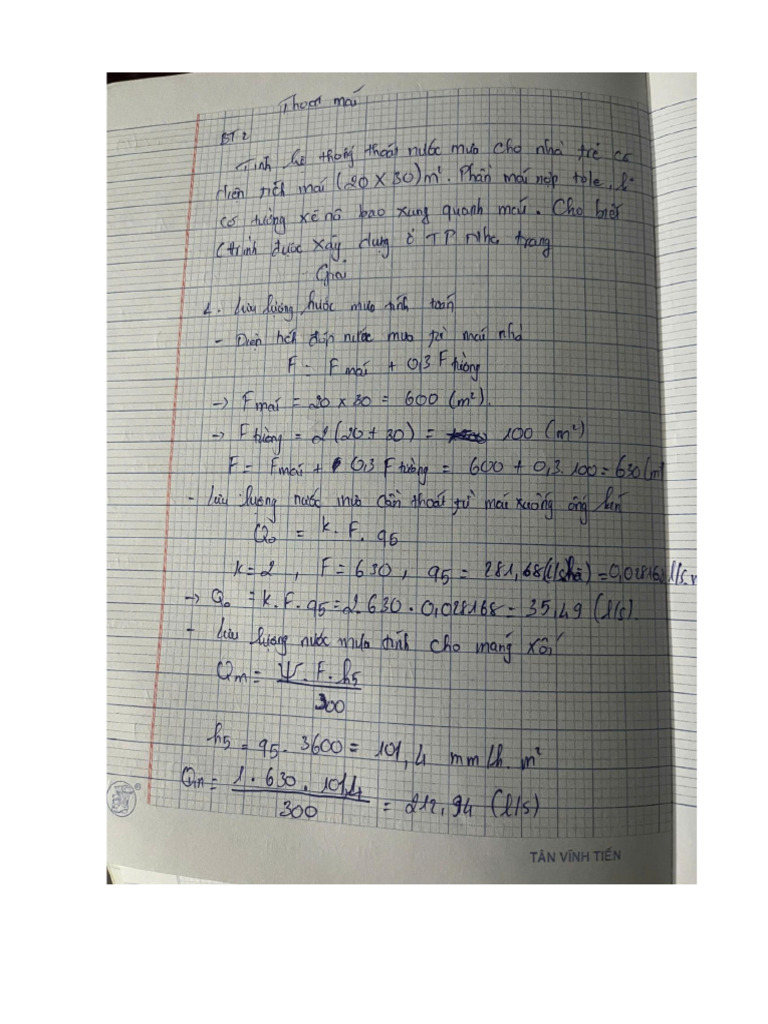 Thoát mái
BT2
Tính hệ thống thoát nước mưa cho nhà trẻ có
diện tích mái (20 x 30) m². Phần mái nợp tole,
có tường xê nô bao xung quanh mái. Cho biết
Ctrình được xây dựng ở TP Nha trang
Giải
1. Lưu lượng nước mưa tính toán
- Diện tích đón nước mưa từ mái nhà
F = F mái + 0,3 F tường
→ F mái = 20 x 30 = 600 (m²).
→ F tường = 2 (20 + 30) = 100 (m²)
F = F mái + 0,3 F tường = 600 + 0,3. 100 = 630 (m
- Lưu lượng nước mưa cần thoát từ mái xuống ống
Q₀ = K. F. q5
K = 2 , F = 630 , q5 = 281,68 (l/s.ha) = 0,028168 l/s.m
→ Q₀ = K. F. q5 = 2. 630. 0,028168 = 35,49 (l/s).
- Lưu lượng nước mưa tính cho máng xối
Qm = Ψ. F. h5
300
h5 = q5. 3600 = 101,4 mm/h. m²
Qm = 1. 630. 101,4
300
= 212,94 (l/s)
TÂN VĨNH TIẾN